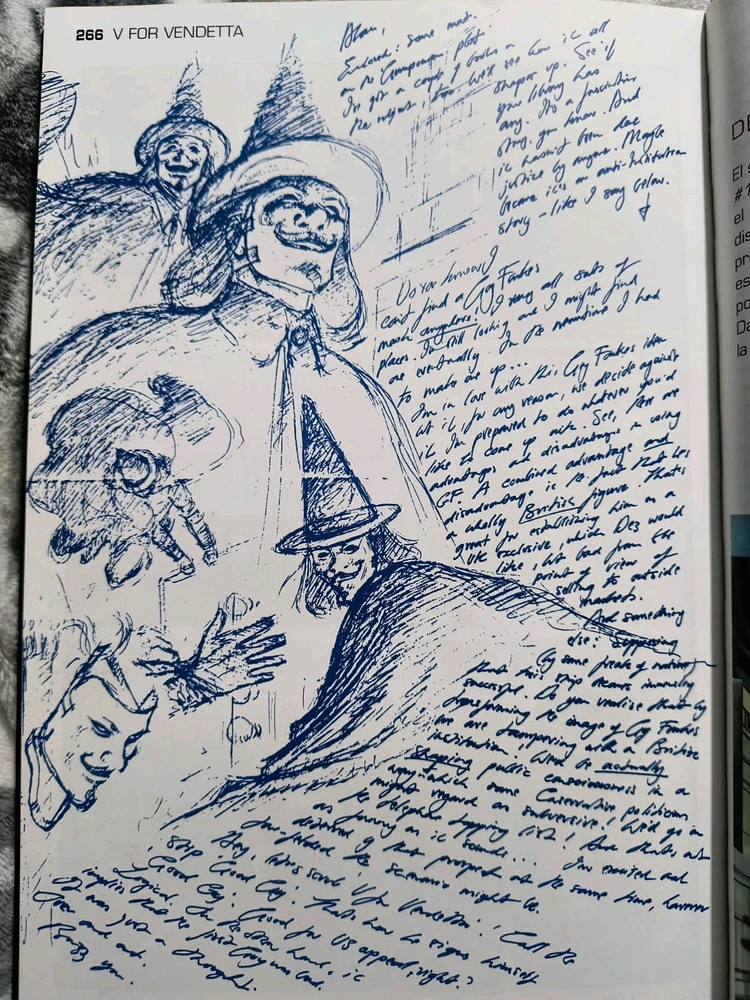 266 V FOR VENDETTA
Alan,
Enclosed: some mat.
on the Gunpowder plot
I've got a couple of books on
the subject, too. We'll see how it all
shapes up. See if
your library has
any. It's a fascinating
story, you know. And
it hasn't been done
justice by anyone. Maybe
because it's an anti-institution
story – like I say below.
Do you know I
can't find a Guy Fawkes
mask anywhere. I rang all sorts of
places. I'm still looking and I might find
one eventually. In the meantime I had
to make one up...
I'm in love with this Guy Fawkes idea
but if, for any reason, we decide against
it, I'm prepared to do whatever you'd
like to come up with. See, there are
advantages and disadvantages in using
GF. A combined advantage and
disadvantage is the fact that he's
a wholly British figure. That's
great for establishing him as a
UK exclusive, which Dez would
like, but bad from the
point of view of
selling to outside
markets.
And something
else: Supposing
by some freak of nature
that this strip becomes immensely
successful. Do you realise that by
transforming the image of Guy Fawkes
we are tampering with a British
institution! We'd be actually
shaping public consciousness in a
way which some Conservative politicians
might regard as subversive! We'd go on
the telephone tapping list! And that's not
as funny as it sounds... I'm excited and
disturbed by that prospect at the same time, however
far-fetched the scenario might be.
Hey, let's scrub V for Vendetta! Call the
strip 'Good Guy'. That's how he signs himself
'Good Guy'. Good for US appeal, right?
Logical. On the other hand, it
implies that the first Guy was bad.
It was just a thought.
Over and out.
Buzz you.
DE
El s
#
el
dis
pre
es
po
Da
la